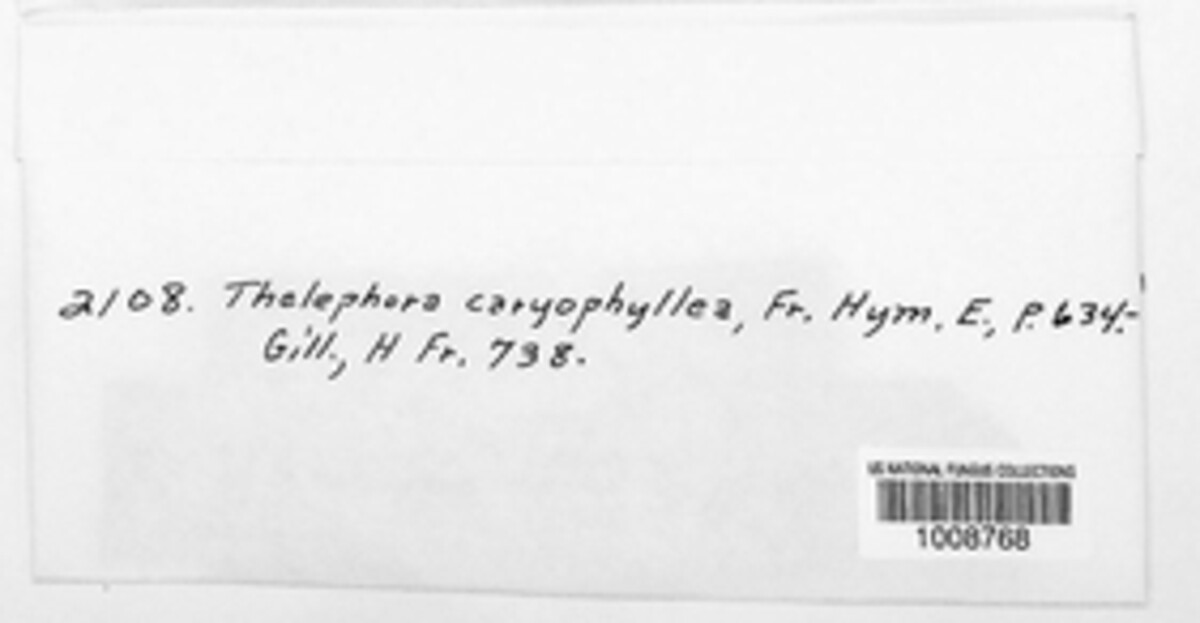 2108. Thelephora caryophyllea, Fr. Hym. E., P. 634.-
Gill., H Fr. 738.
US NATIONAL FUNGUS COLLECTIONS
1008768